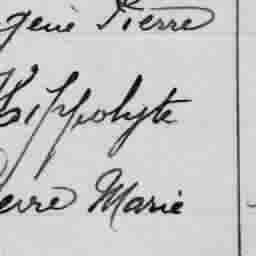 gène Pierre
Hippolyte
erre Marie